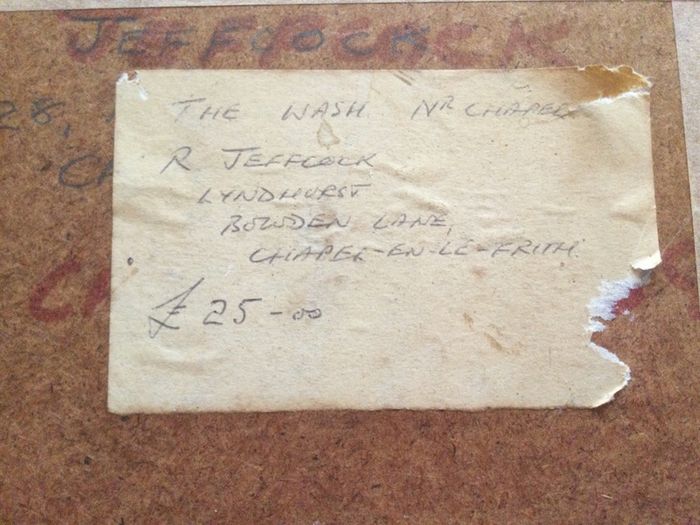 JEFFCOCK
28,
THE WASH NR CHAPEL
R JEFFCOCK
LYNDHURST
BOWDEN LANE,
CHAPEL-EN-LE-FRITH.
£ 25-00